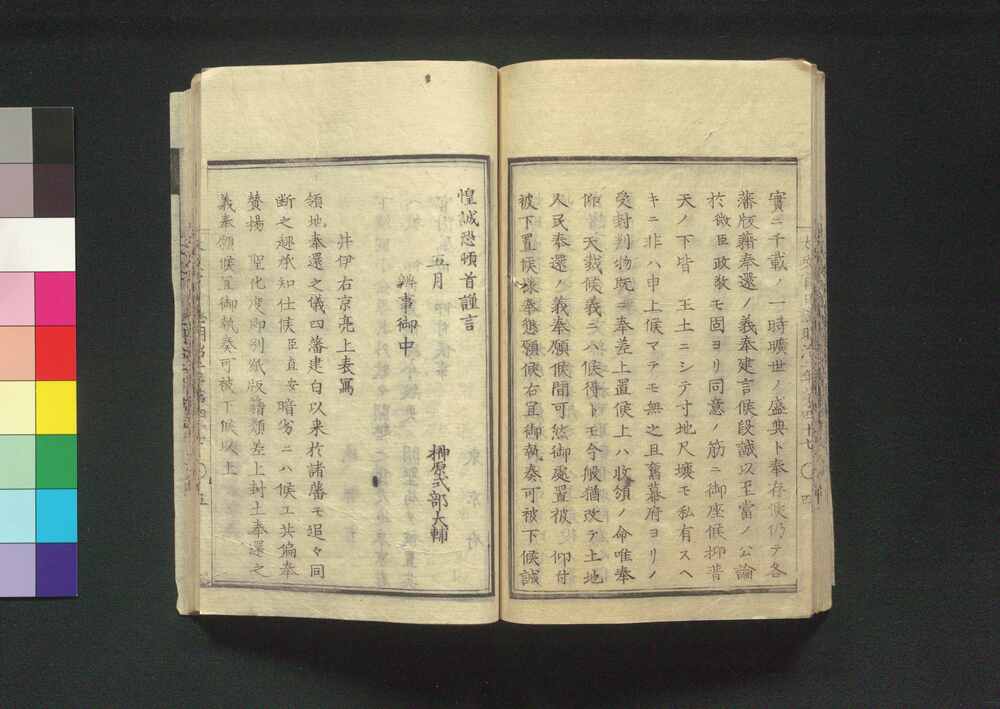 實ニ千載ノ一時曠世ノ盛典ト奉存候仍テ各
藩版籍奉還ノ義奉建言候段誠以至當ノ公論
於微臣政敎モ固ヨリ同意ノ筋ニ御座候抑普
天ノ下皆　王土ニシテ寸地尺壤モ私有スヘ
キニ非ハ申上候マテモ無之且舊幕府ヨリノ
受封判物既ニ奉差上置候上ハ收領ノ命唯奉
仰　天裁候義ニハ候得トモ今般猶改テ土地
人民奉還ノ義奉願候間可然御處置被　仰付
被下置候樣奉懇願候右宜御執奏可被下候誠
惶誠恐頓首謹言
五月　榊原式部大輔
辨事御中
井伊右京亮上表寫
領地奉還之儀四藩建白以来於諸藩モ追々同
断之趣承知仕候臣直安暗劣ニハ候エ共偏奉
賛揚　聖化度即別紙版籍類差上封土奉還之
義奉願候宜御執奏可被下候以上